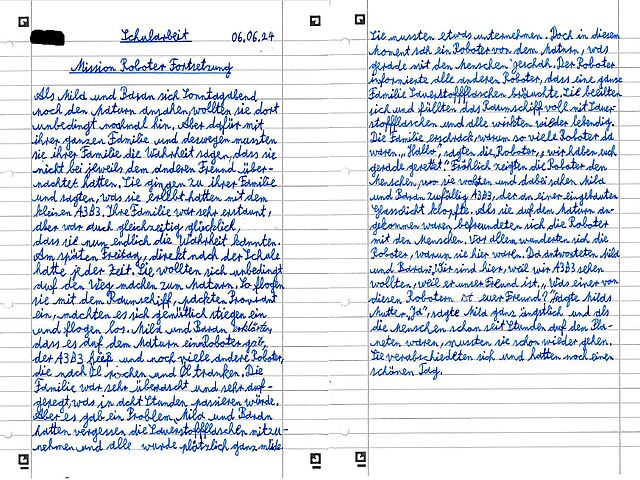 Schularbeit 06.06.24
Mission Roboter Fortsetzung
Als Mila und Baran sich Sonntagabend
noch den Maturn ansahen, wollten sie dort
unbedingt nochmal hin. Aber dafür mit
ihrer ganzen Familie und deswegen mussten
sie ihrer Familie die Wahrheit sagen, dass sie
nicht bei jeweils dem anderen Freund über-
nachtet hatten. Sie gingen zu ihrer Familie
und sagten, was sie erlebt hatten mit dem
kleinen A3B3. Ihre Familie war sehr erstaunt,
aber war auch gleichzeitig glücklich,
dass sie nun endlich die Wahrheit kannten.
Am späten Freitag, direkt nach der Schule
hatte jeder Zeit. Sie wollten sich unbedingt
auf den Weg machen zum Maturn. So flogen
sie mit dem Raumschiff, packten Proviant
ein, machten es sich gemütlich stiegen ein
und flogen los. Mila und Baran erklärten,
dass es auf dem Maturn einen Roboter gab,
der A3B3 hieß und noch viele andere Roboter,
die nach Öl rochen und Öl tranken. Die
Familie war sehr überascht und sehr auf-
geregt, was in acht Stunden passieren würde.
Aber es gab ein Problem, Mila und Baran
hatten vergessen die Sauerstoffflaschen mitzu-
nehmen und alle wurde plötzlich ganz müde.
Sie mussten etwas unternehmen. Doch in diesem
Moment sah ein Roboter von dem Maturn, was
gerade mit den Menschen geschah. Der Roboter
informierte alle anderen Roboter, dass eine ganze
Familie Sauerstoffflaschen bräuchte. Sie beeilten
sich und füllten das Raumschiff voll mit Sauer-
stoffflaschen und alle wirkten wieder lebendig.
Die Familie erschrack warum so viele Roboter da
waren. „Hallo", sagten die Roboter, „wir haben euch
gerade gerettet." Fröhlich zeigten die Roboter den
Menschen, wo sie wohnten und dabei sahen Mila
und Baran zufällig A3B3, der an einer eingebauten
Glassicht klopfte. Als sie auf dem Maturn an-
gekommen waren, befreundeten sich die Roboter
mit den Menschen. Vor allem wunderten sich die
Roboter, warum sie hier waren. Da antworteten Mila
und Baran: „Wir sind hier, weil wir A3B3 sehen
wollten, weil er unser Freund ist." „Was einer von
diesen Robotern ist euer Freund?" fragte Milas
Mutter. „Ja", sagte Mila ganz ängstlich und als
die Menschen schon seit Stunden auf dem Pla-
neten waren, mussten sie schon wieder gehen.
Sie verabschiedeten sich und hatten noch einen
schönen Tag.